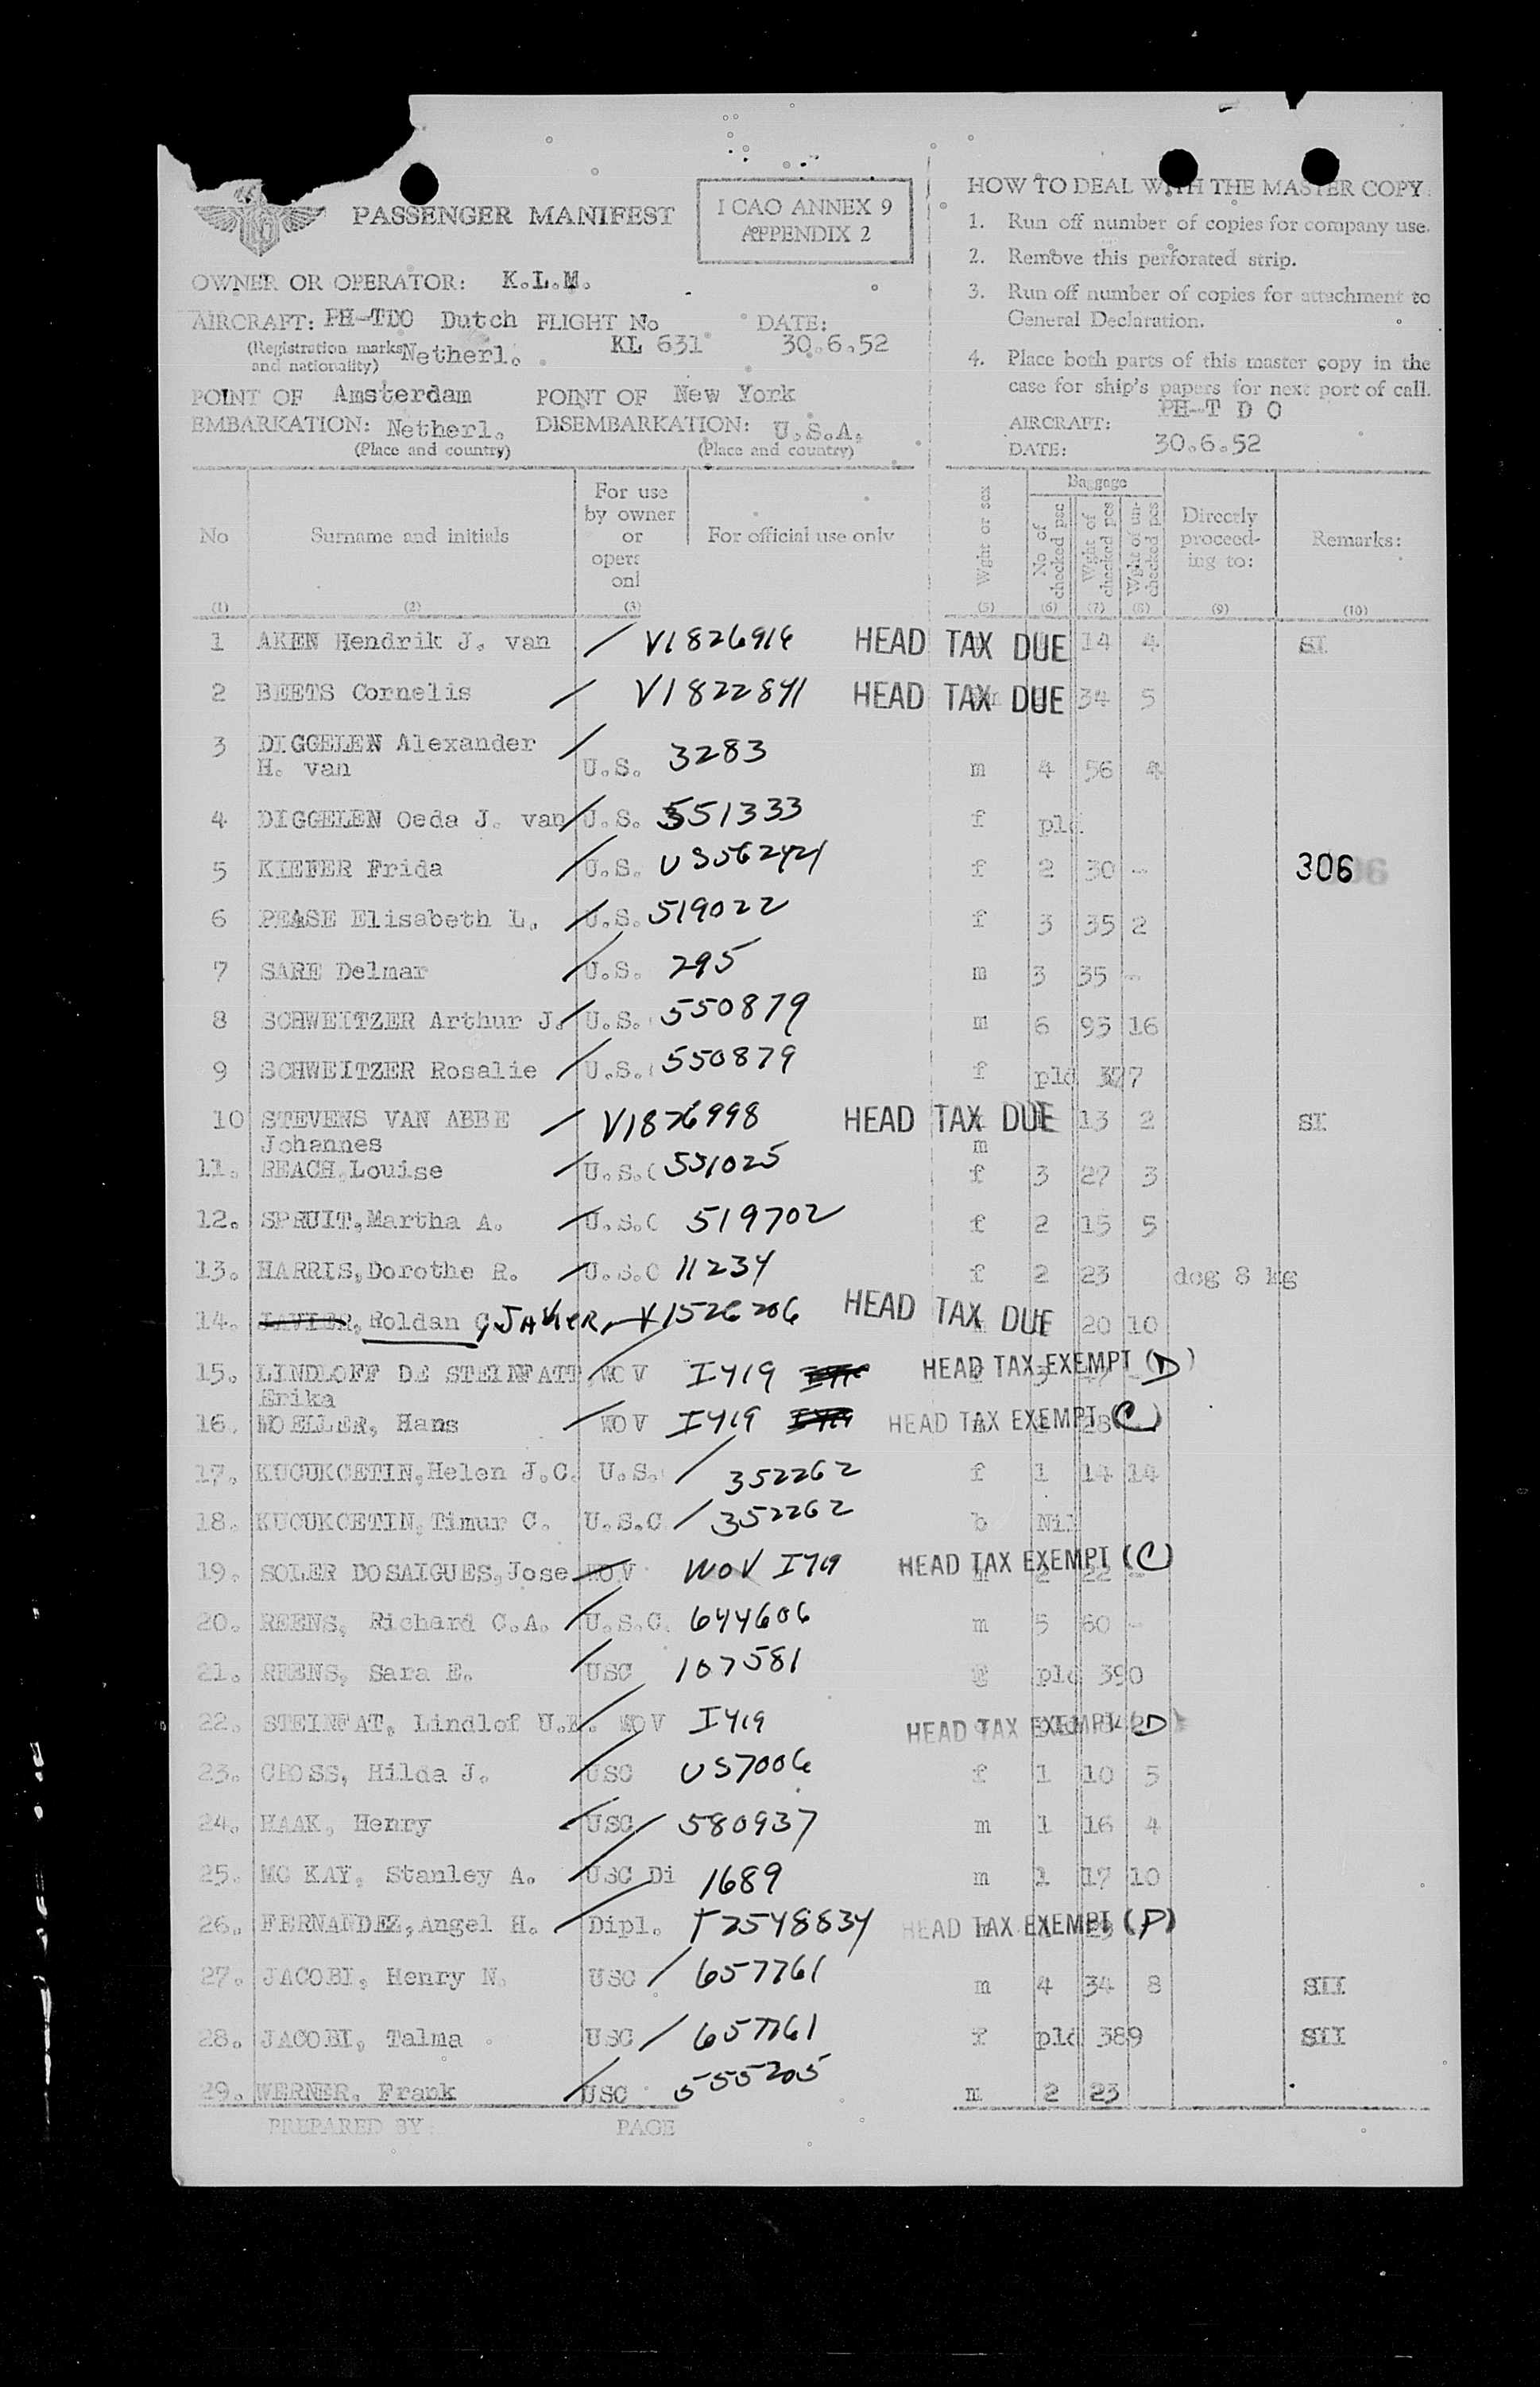 PASSENGER MANIFEST
I CAO ANNEX 9
APPENDIX 2
OWNER OR OPERATOR: K.L.M.
AIRCRAFT: PH-TDO Dutch FLIGHT No DATE:
(Registration marks Netherl. KL 631 30.6.52
and nationality)
POINT OF Amsterdam POINT OF New York
EMBARKATION: Netherl. DISEMBARKATION: U.S.A.
(Place and country) (Place and country)
HOW TO DEAL WITH THE MASTER COPY
1. Run off number of copies for company use.
2. Remove this perforated strip.
3. Run off number of copies for attachment to
General Declaration.
4. Place both parts of this master copy in the
case for ship's papers for next port of call.
PH-T D O
AIRCRAFT:
DATE: 30.6.52
No Surname and initials For use by owner or opera onl For official use only Wght or sex Baggage No of checked psc Wght of checked pcs Wght of un-checked pcs Directly proceed-ing to: Remarks:
(1) (2) (3) (5) (6) (7) (8) (9) (10)
1 AKEN Hendrik J. van V1826916 HEAD TAX DUE 14 4 SI
2 BEETS Cornelis V1822841 HEAD TAX DUE 34 5
3 DIGGELEN Alexander
H. van U.S. 3283 m 4 56 4
4 DIGGELEN Oeda J. van U.S. 551333 f pld
5 KIEFER Frida U.S. US562421 f 2 30 - 306
6 PEASE Elisabeth L. U.S. 519022 f 3 35 2
7 SARE Delmar U.S. 295 m 3 35 -
8 SCHWEITZER Arthur J. U.S. 550879 m 6 93 16
9 SCHWEITZER Rosalie U.S. 550879 f pld 377
10 STEVENS VAN ABBE V1826998 HEAD TAX DUE 13 2 SI
Johannes m
11. REACH, Louise U.S.C 551025 f 3 27 3
12. SPRUIT, Martha A. U.S.C 519702 f 2 15 5
13. HARRIS, Dorothe R. U.S.C 11234 f 2 23 dog 8 kg
14. JAVIER, Roldan C, JAVIER, V1526206 HEAD TAX DUE 20 10
15. LINDLOFF DE STEINFATT WOV I419 HEAD TAX EXEMPT (D)
Erika
16. MOELLER, Hans WOV I419 HEAD TAX EXEMPT (C)
17. KUCUKCETIN, Helen J.C. U.S. 352262 f 1 14 14
18. KUCUKCETIN, Timur C. U.S.C 352262 b Nil
19. SOLER DOSAIGUES, Jose WOV WOV I419 HEAD TAX EXEMPT (C) 2 22 -
20. REENS, Richard C.A. U.S.C. 644606 m 5 60 -
21. REENS, Sara E. USC 107581 pld 390
22. STEINFAT, Lindlof U.E. WOV I419 HEAD TAX EXEMPT (D)
23. CROSS, Hilda J. USC US7006 f 1 10 5
24. HAAK, Henry USC 580937 m 1 16 4
25. MC KAY, Stanley A. USC Di 1689 m 1 17 10
26. FERNANDEZ, Angel H. Dipl. T2548834 HEAD TAX EXEMPT (P)
27. JACOBI, Henry N. USC 657761 m 4 34 8 SII
28. JACOBI, Talma USC 657761 f pld 389 SII
29. WERNER, Frank USC 555205 m 2 23
PREPARED BY: PAGE